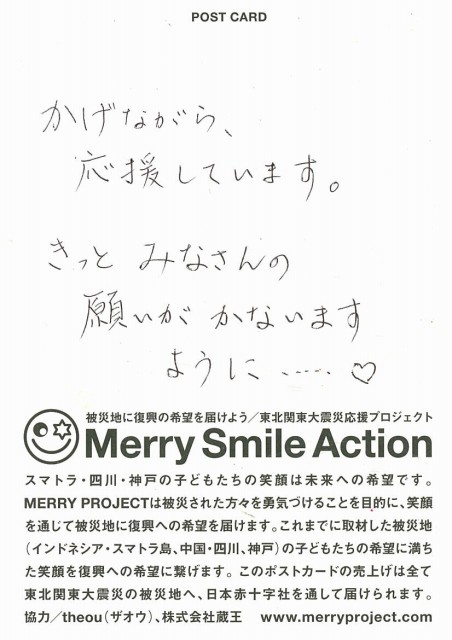 POST CARD
かげながら、
応援しています。
きっと みなさんの
願いが かないます
ように ……♡
被災地に復興の希望を届けよう／東北関東大震災応援プロジェクト
Merry Smile Action
スマトラ・四川・神戸の子どもたちの笑顔は未来への希望です。
MERRY PROJECTは被災された方々を勇気づけることを目的に、笑顔
を通じて被災地に復興への希望を届けます。これまでに取材した被災地
（インドネシア・スマトラ島、中国・四川、神戸）の子どもたちの希望に満ち
た笑顔を復興への希望に繋げます。このポストカードの売上げは全て
東北関東大震災の被災地へ、日本赤十字社を通して届けられます。
協力／theou（ザオウ）、株式会社蔵王　www.merryproject.com